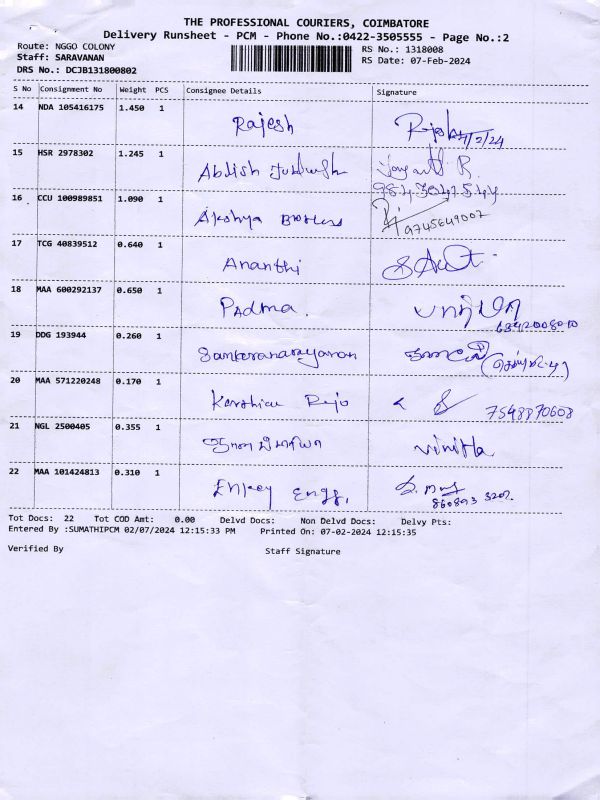 THE PROFESSIONAL COURIERS, COIMBATORE
Delivery Runsheet - PCM - Phone No.:0422-3505555 - Page No.:2
Route: NGGO COLONY
RS No.: 1318008
Staff: SARAVANAN
RS Date: 07-Feb-2024
DRS No.: DCJB131800802
S No Consignment No Weight PCS Consignee Details Signature
14 NDA 105416175 1.450 1
Rajesh
15 HSR 2978302 1.245 1
16 CCU 100989851 1.090 1
Akshya Brothers 9745649007
17 TCG 40839512 0.640 1
Ananthi
18 MAA 600292137 0.650 1
Padma.
19 DDG 193944 0.260 1
Sankaranarayanan
20 MAA 571220248 0.170 1
7548870608
21 NGL 2500405 0.355 1
Vinitha
22 MAA 101424813 0.310 1
Enkey Engg.
Tot Docs: 22 Tot COD Amt: 0.00 Delvd Docs: Non Delvd Docs: Delvy Pts:
Entered By :SUMATHIPCM 02/07/2024 12:15:33 PM Printed On: 07-02-2024 12:15:35
Verified By Staff Signature